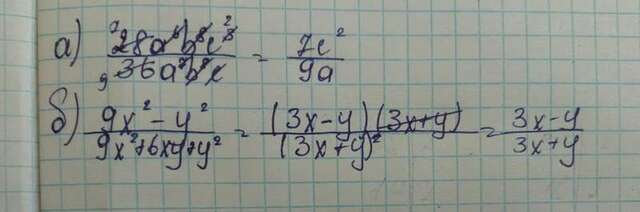 а) 28a⁶b⁸c³ / 36a⁷b⁸c = 7c² / 9a
б) 9x² - y² / 9x² + 6xy + y² = (3x - y)(3x + y) / (3x + y)² = 3x - y / 3x + y